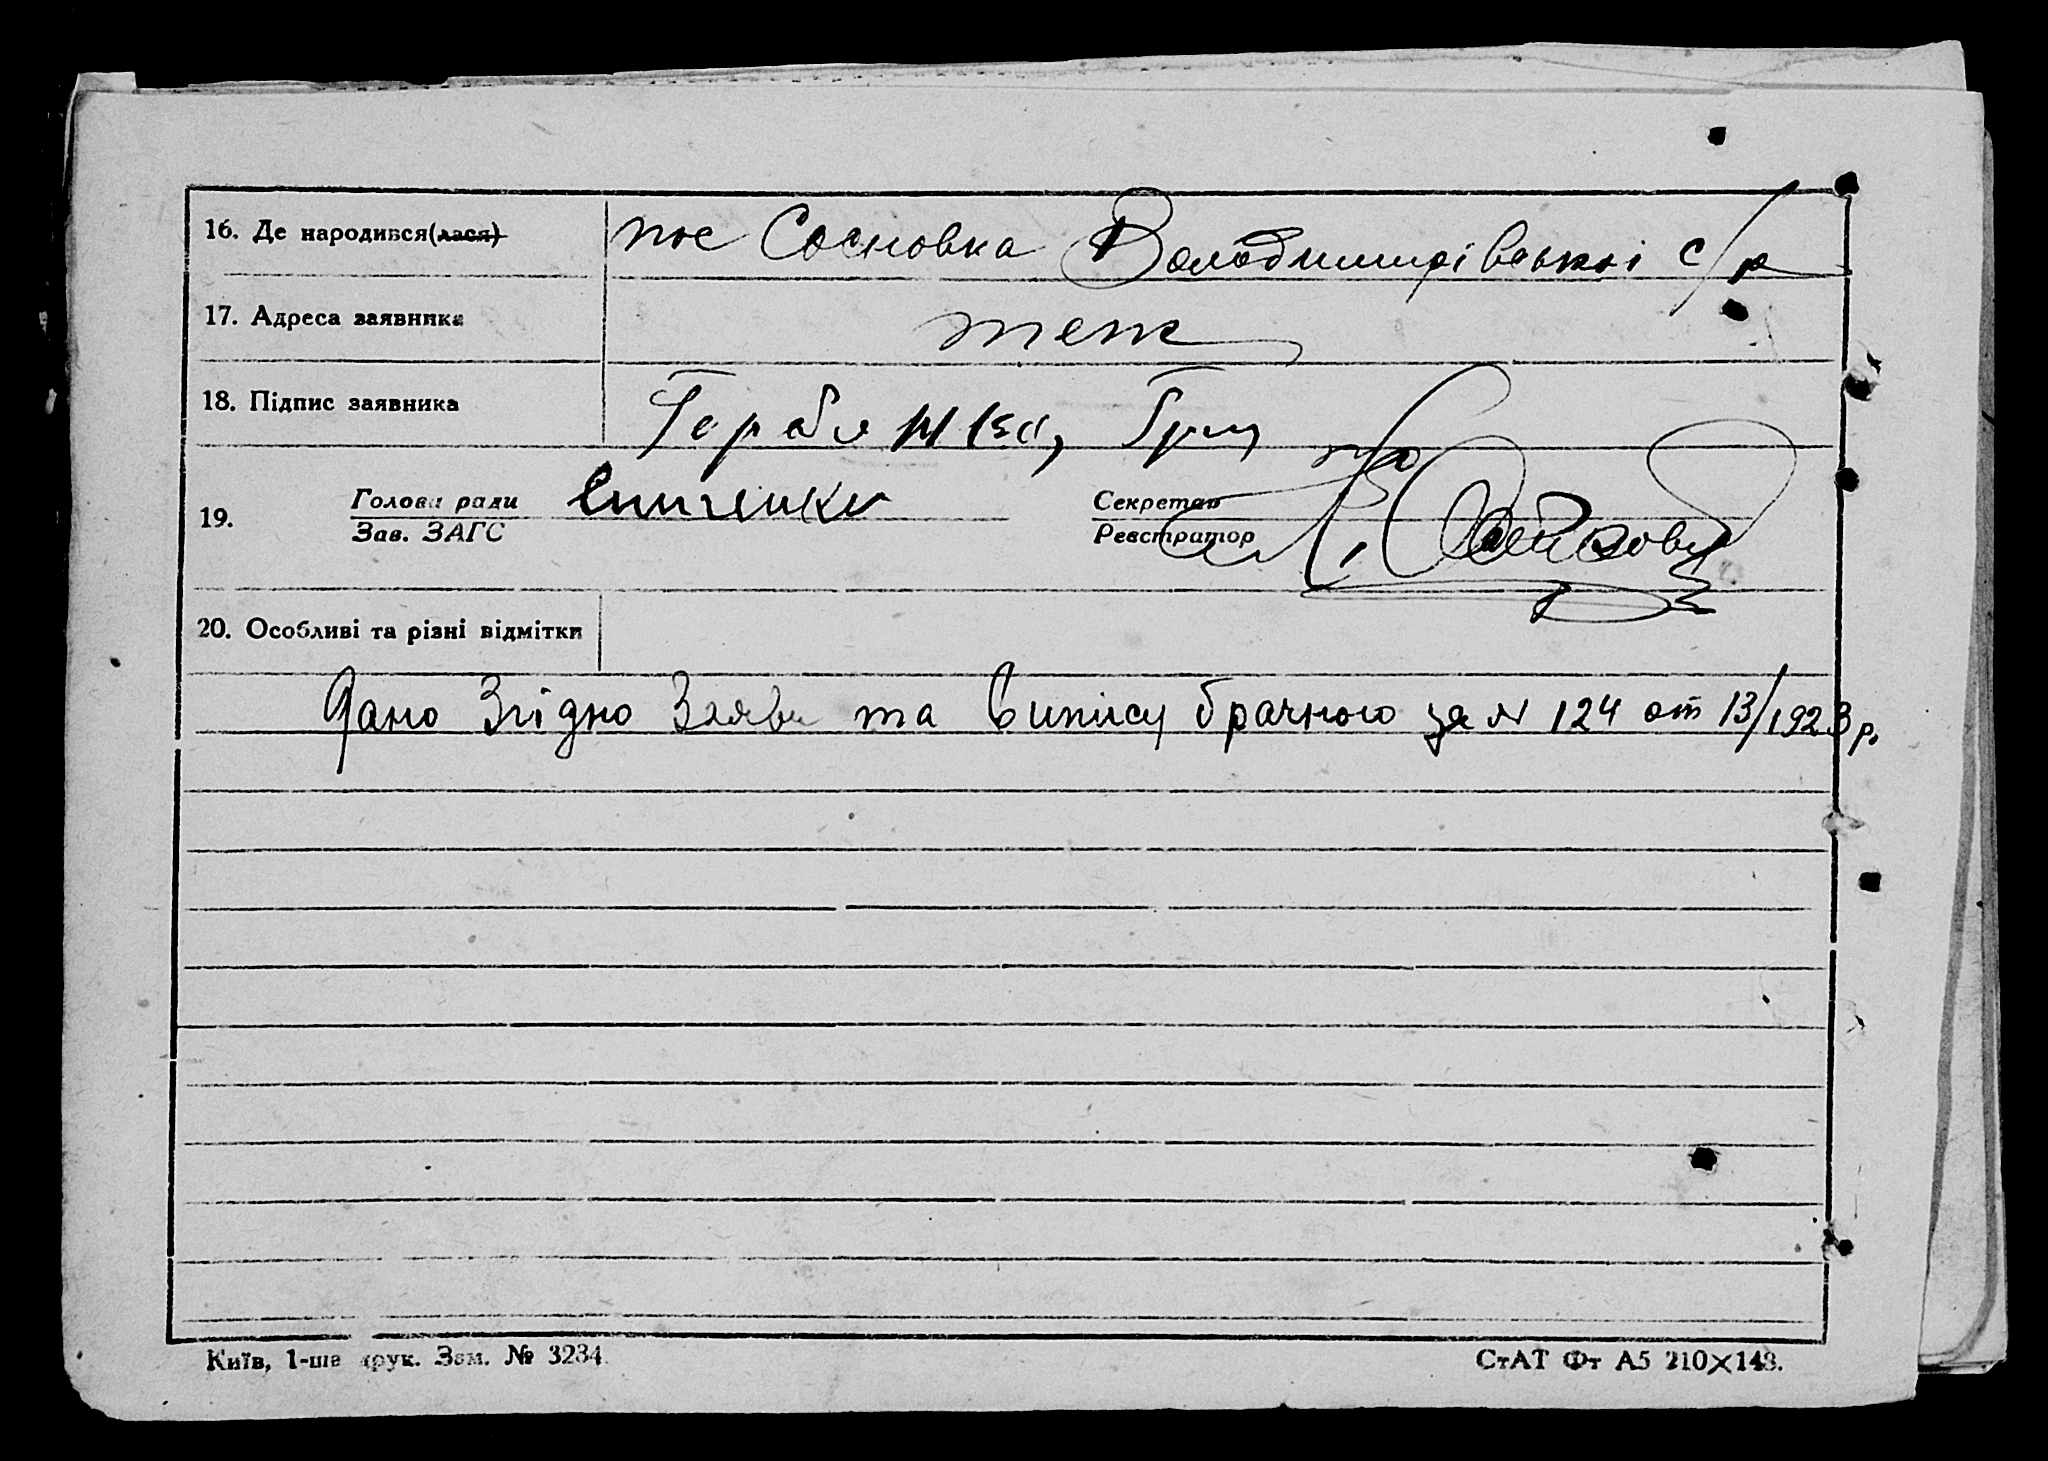 16. Де народився(лася) пос Сосновка Володимирівської с/р
17. Адреса заявника теж
18. Підпис заявника Гри
Голова ради Секретар
19.
Зав. ЗАГС Реєстратор
20. Особливі та різні відмітки
Дано Згідно Заяви та Випісу брачного за № 124 от 13/1923 р.
Київ, 1-ша друк. Зам. № 3234. СтАТ Фт А5 210×148.